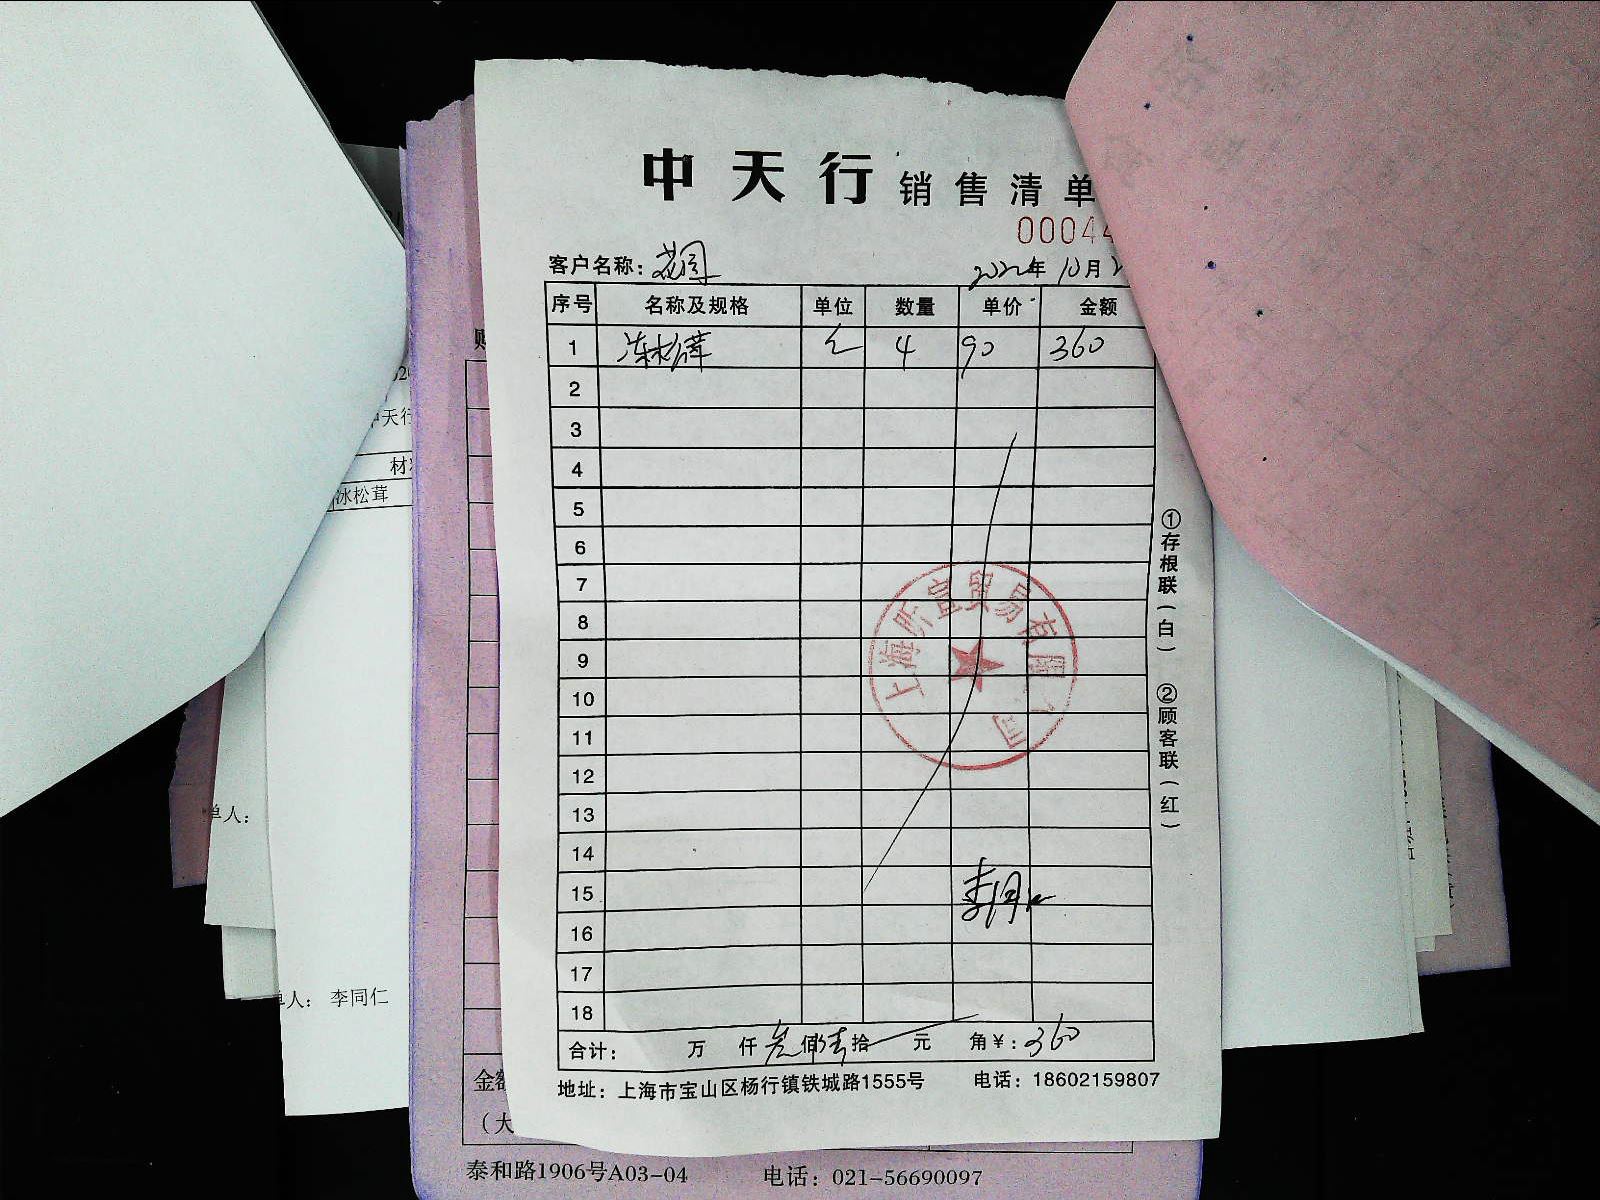 中天行 销售清单
00044
客户名称：花园 2022年 10月
序号 名称及规格 单位 数量 单价 金额
1 冻松茸 4 90 360
2
3
4
5
6
7
8
9
10
11
12
13
14
15
16
17
18
合计： 万 仟 叁佰 陆拾 元 角￥：360
地址：上海市宝山区杨行镇铁城路1555号 电话：18602159807
①存根联（白） ②顾客联（红）
上海昕宣贸易有限公司
李同仁
中天行
材
冰松茸
单人：
单人： 李同仁
金额
（大
泰和路1906号A03-04 电话：021-56690097